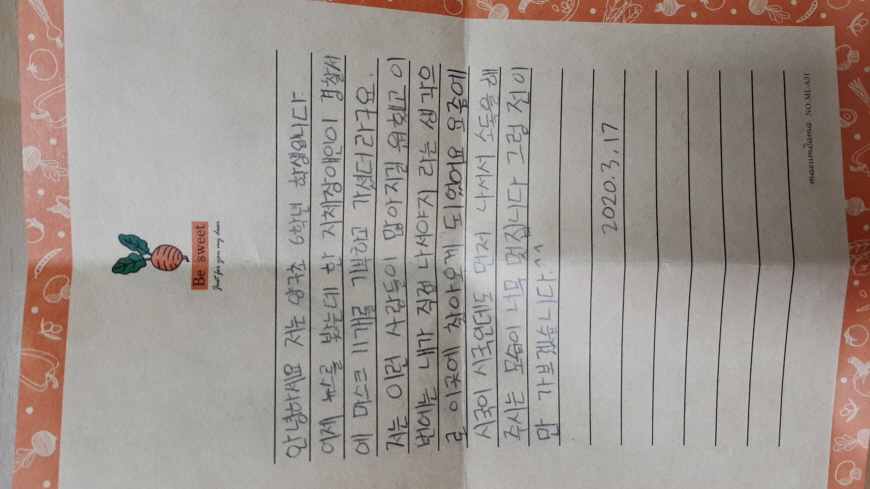 Be sweet
Just for you my dear
안녕하세요 저는 양구초 6학년 학생입니다.
어제 뉴스를 봤는데 한 지체장애인이 경찰서
에 마스크 11개를 기부하고 가셨더라구요.
저는 이런 사람들이 많아지길 원했고 이
번에는 내가 직접 나서야지 라는 생각으
로 이곳에 찾아오게 되었어요 요즘에
시국이 시국인데도 먼저 나서서 소독을 해
주시는 모습이 너무 멋집니다 그럼 전이
만 가보겠습니다.^^
2020.3.17
moeumdama NO.ML-A31